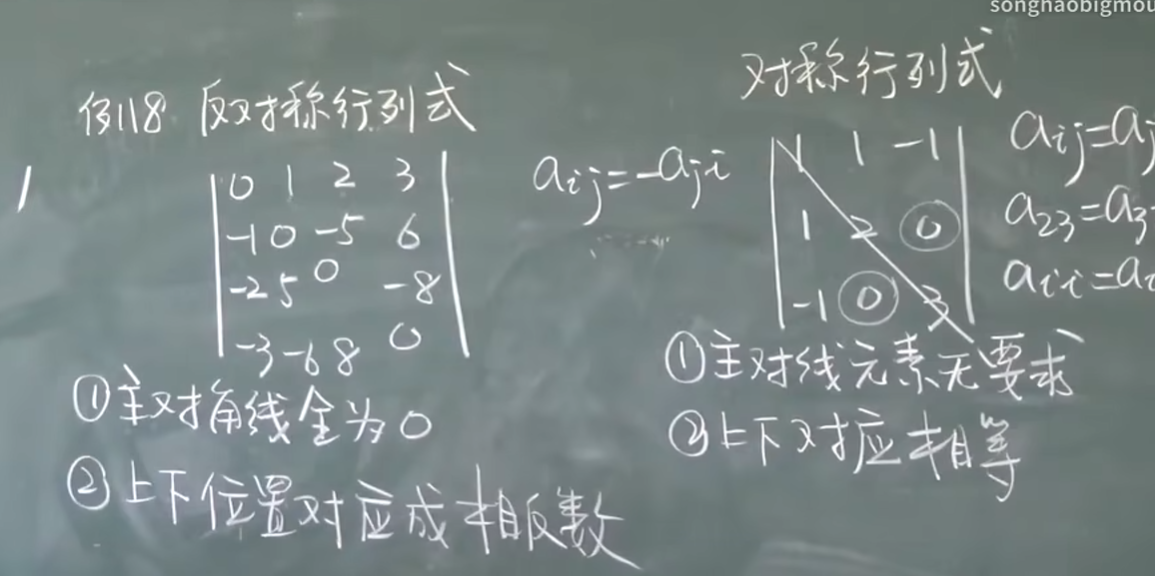 songhaobigmou
例18 反对称行列式
0 1 2 3
-1 0 -5 6
-2 5 0 -8
-3 -6 8 0
①主对角线全为0
②上下位置对应成相反数
aij=-aji
对称行列式
1 1 -1
1 2 0
-1 0 3
aij=aj
a23=a3
aii=a
①主对线元素无要求
②上下对应相等